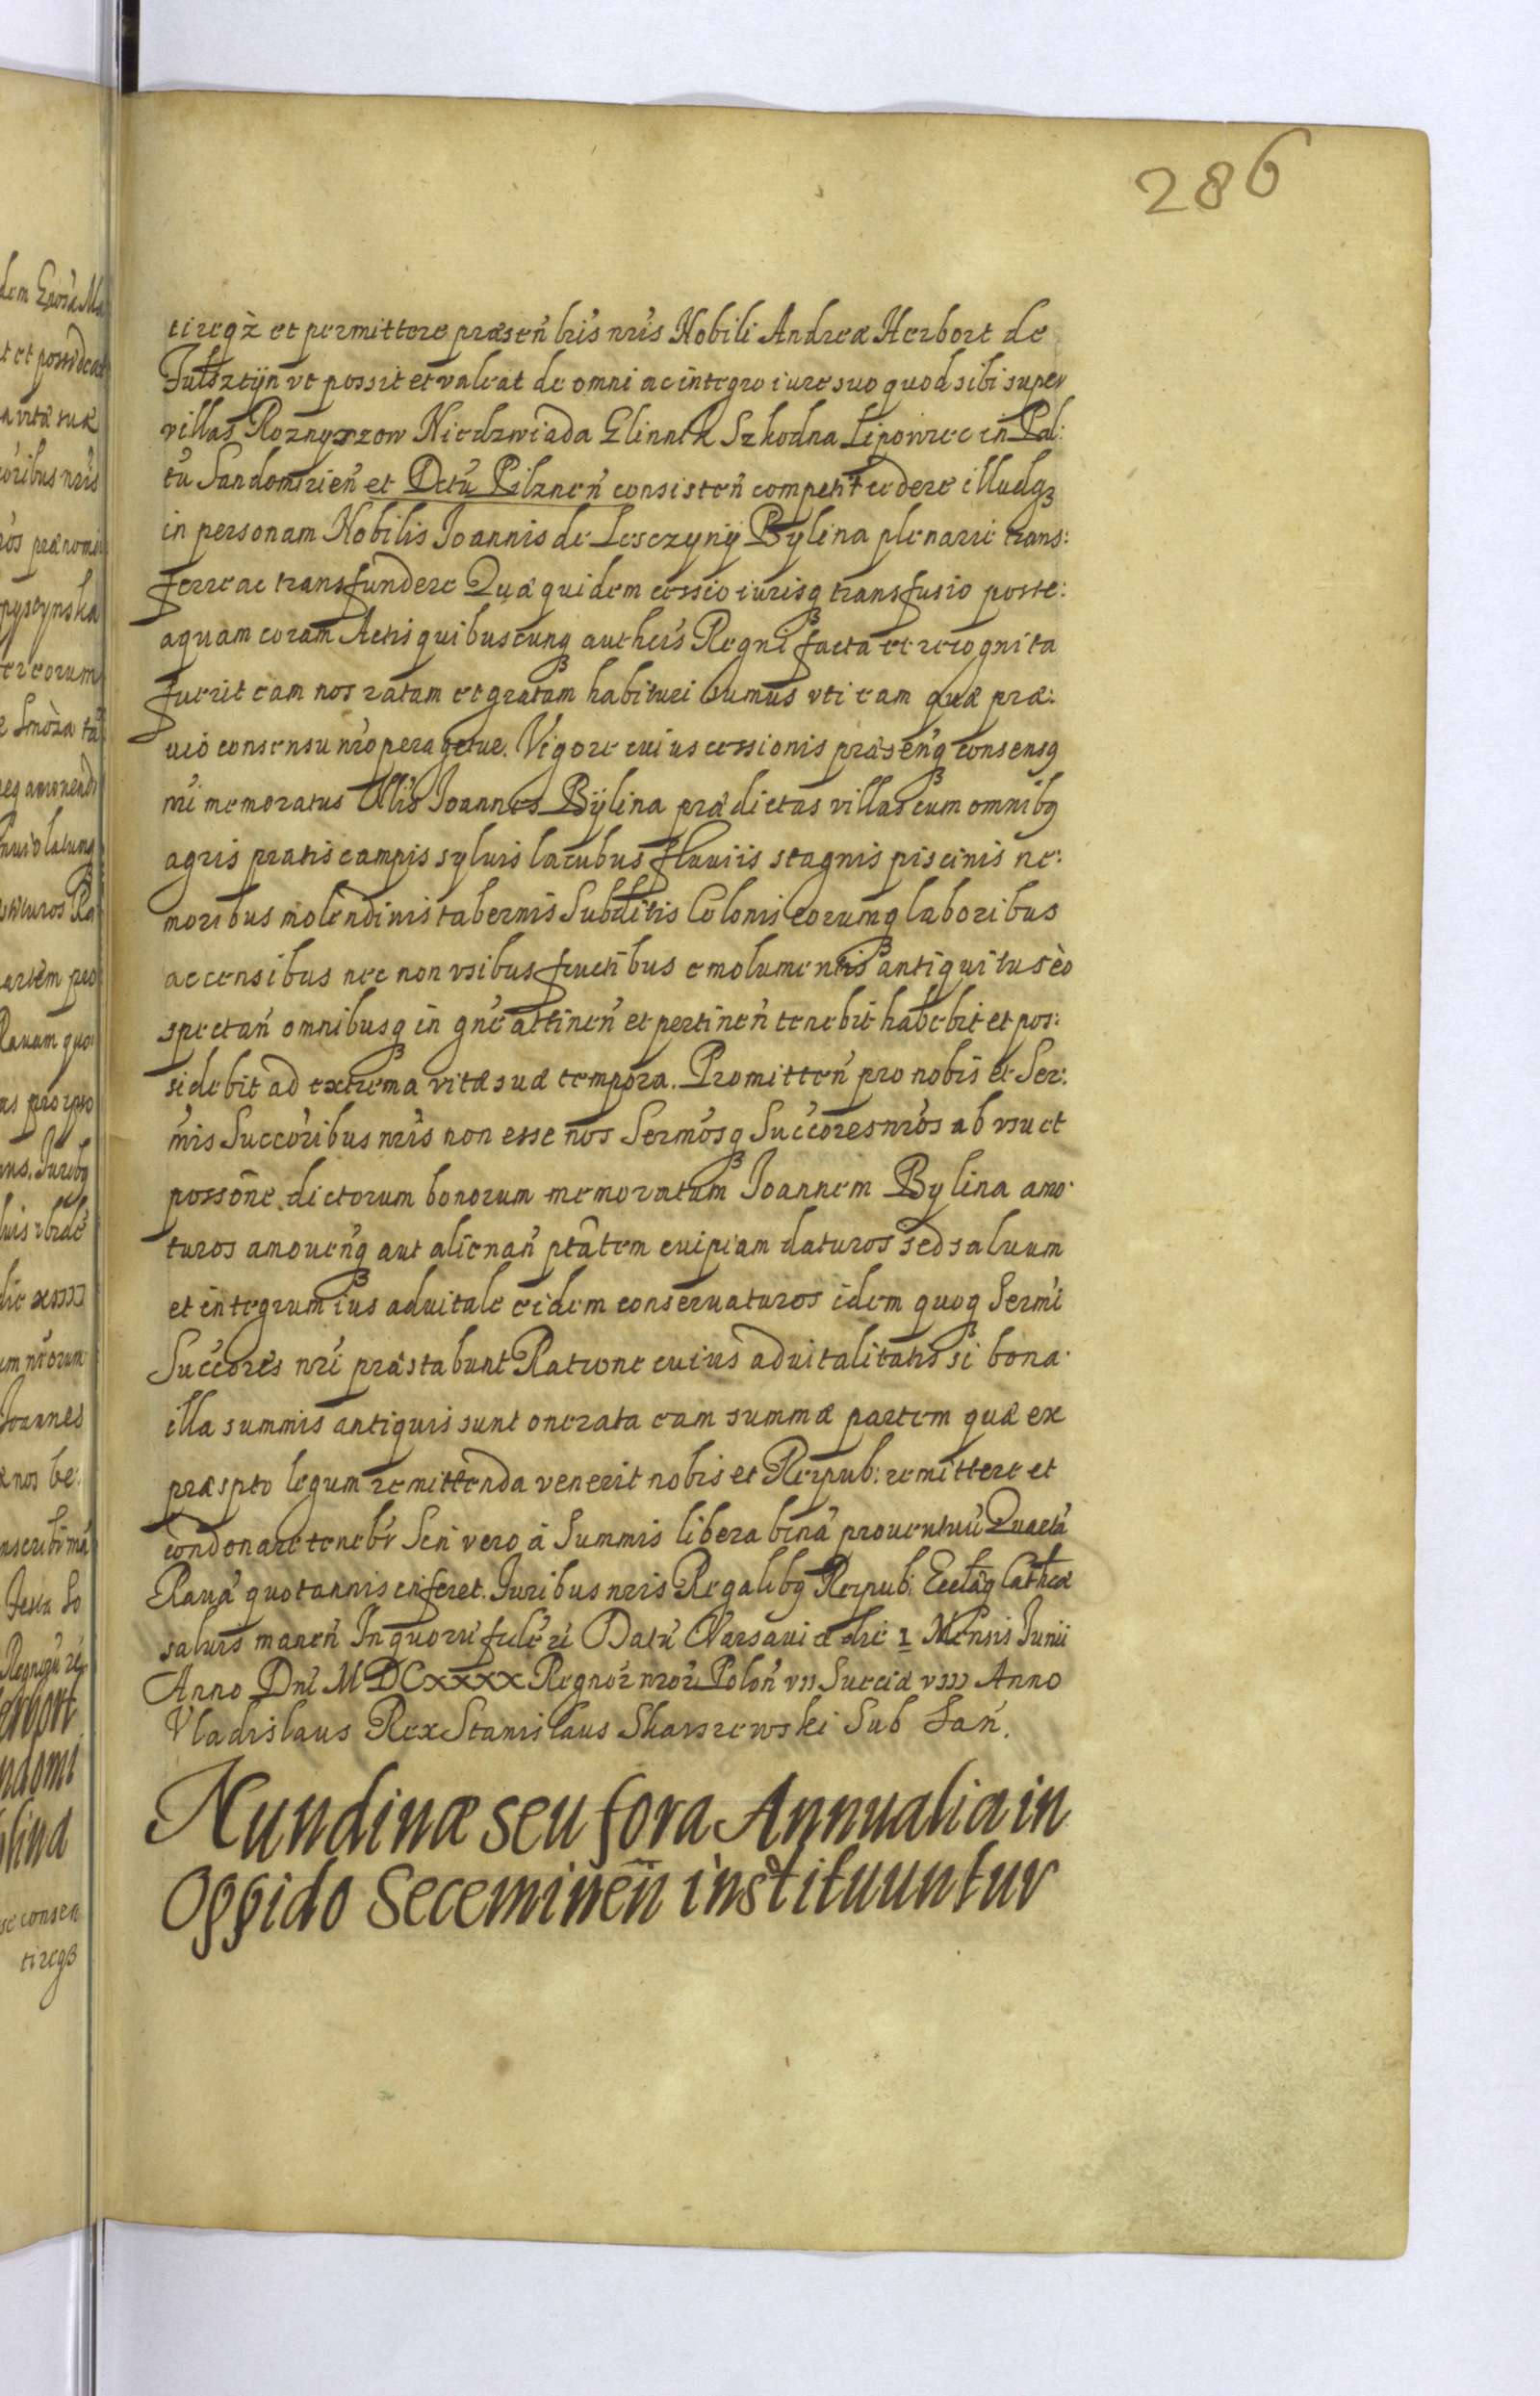 286
tireqz et permittere præsen̄ lr̄is nr̄is Nobili Andreæ Herbort de
Fulsztÿn vt possit et valeat de omni ac integro iure suo quod sibi super
villas Roznyszow Niedzwiada Glinnik Szkodna Lipowiec in Pal:
tū Sandomirien̄ et Dctū Pilznen̄ consisten̄ competit cedere illudqȝ
in personam Nobilis Joannis de Lesczyny Bylina plenarie trans:
ferre ac transfundere Quæ quidem cessio iurisqȝ transfusio poste:
aquam coram Actis quibuscunqȝ autheis Regni facta et recognita
fuerit eam nos ratam et gratam habituri sumus vti eam quæ præ:
uio consensu nr̄o peragetur. Vigore cuius cessionis præsenqȝ consensq
nr̄i memoratus Nlis Joannes Bÿlina prædictas villas cum omnibq
agris pratis campis syluis lacubus fluuiis stagnis piscinis ne:
moribus molendinis tabernis Subditis Colonis eorumqȝ laboribus
ac censibus nec non vsibus fructibus emolumentis antiquitus eò
spectan̄ omnibusqȝ in gn̄e attinen̄ et pertinen̄ tenebit habebit et pos:
sidebit ad extrema vitæ suæ tempora. Promitten̄ pro nobis et Ser:
mis Succoribus nr̄is non esse nos Sermosqȝ Succores nr̄os ab vsu et
possōne dictorum bonorum memoratum Joannem Bylina amo:
turos amouenqȝ aut alienan̄ ptātem cuipiam daturos sed saluum
et integrum ius aduitale eidem conseruaturos idem quoqȝ Sermi
Succores nr̄i præstabunt Ratione cuius aduitalitatis si bona
illa summis antiquis sunt onerata eam summæ partem quæ ex
præspto legum remittenda venerit nobis et Reipub: remittere et
condonare tenebr̄ Sen vero à Summis libera binā prouentuū Quartā
Rauā quotannis inferet. Juribus nr̄is Regalibq Reipub: Ecclæqȝ Cathcæ
saluis manen̄ In quorū fidē rē Datū Varsauiæ die 1 Mensis Junii
Anno Dnī MDCXXXX Regnor̄ nror̄ Polon̄ VII Sueciæ VIII Anno
Vladislaus Rex Stanislaus Skarszewski Sub San.
Nundinæ seu fora Annualia in
Oppido Seceminen̄ instituuntur